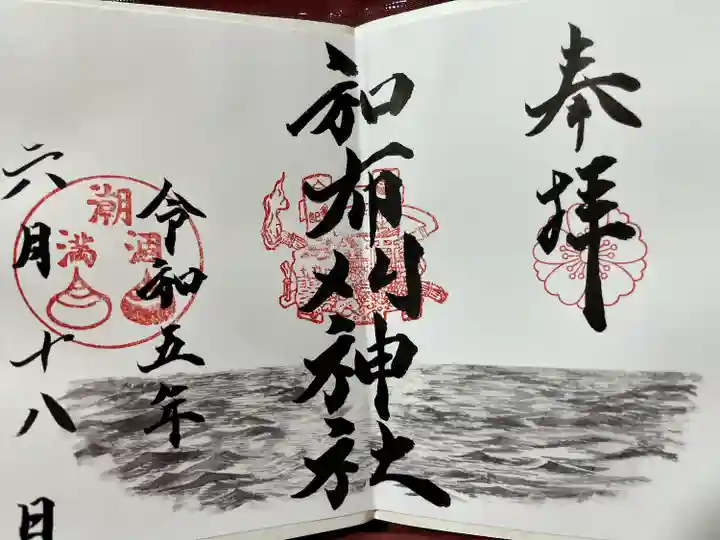 奉拝
和布刈神社
令和五年
六月十八日
潮
満 涸